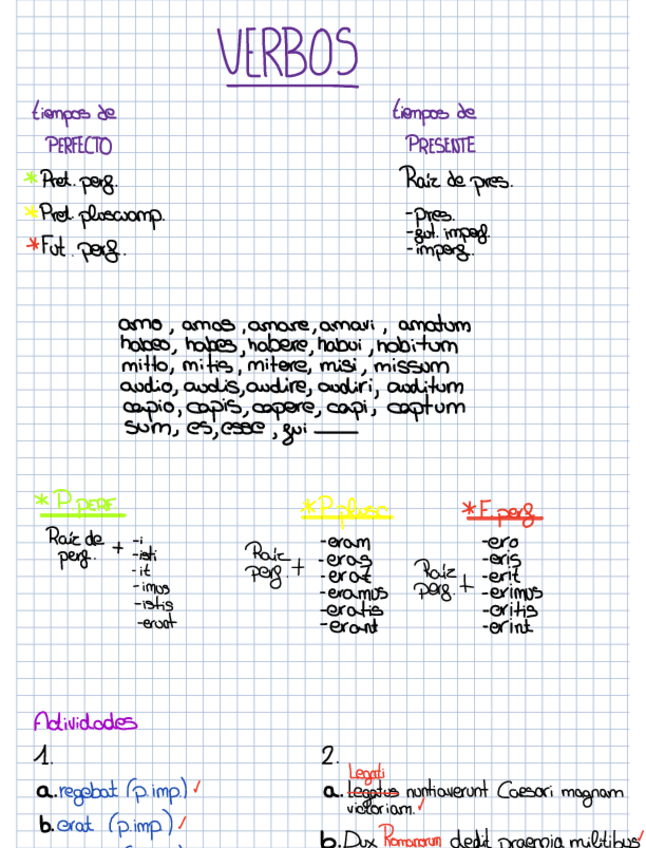 VERBOS
tiempos de
PERFECTO
* Pret. perf.
* Pret pluscuamp.
* Fut. perf.
tiempos de
PRESENTE
Raíz de pres.
-pres.
-fut. imperf.
-imperf.
amo, amas, amare, amavi, amatum
habeo, habes, habere, habui, habitum
mitto, mitis, mitere, misi, missum
audio, audis, audire, audiri, auditum
capio, capis, capere, capi, captum
sum, es, esse, fui ——
* P. PERF
Raíz de
perf. +
-i
-isti
-it
-imus
-istis
-erunt
* P. plusc
Raíz
perf. +
-eram
-eras
-erat
-eramus
-eratis
-erant
* F. perf
Raíz
perf. +
-ero
-eris
-erit
-erimus
-eritis
-erint
Actividades
1.
a. regebat (p.imp.) ✓
b. erat (p.imp) ✓
2.
Legati
a. legatus nuntiaverunt Caesari magnam
victoriam. ✓
b. Dux Romanorum dedit praemia militibus ✓